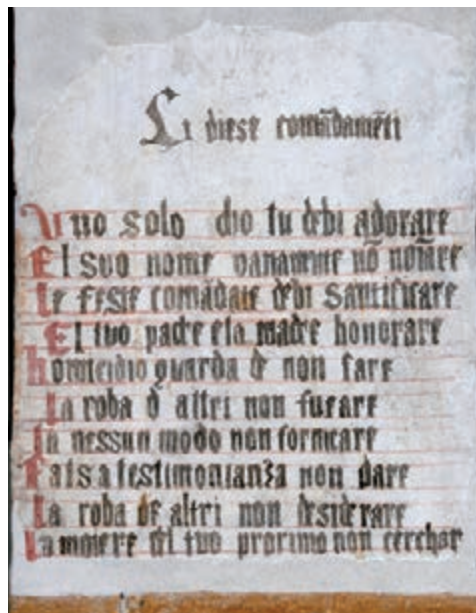 Li diese comãdamẽti
Uno solo dio tu debi adorare
El suo nome vanamente nõ nomĩare
Le feste comãdate debi santificare
El tuo padre e la madre honorare
homicidio guarda de non fare
La roba d altri non furare
In nessun modo non fornicare
Falsa testimonianza non dare
La roba de altri non desiderare
La moiere del tuo proximo non cerchar